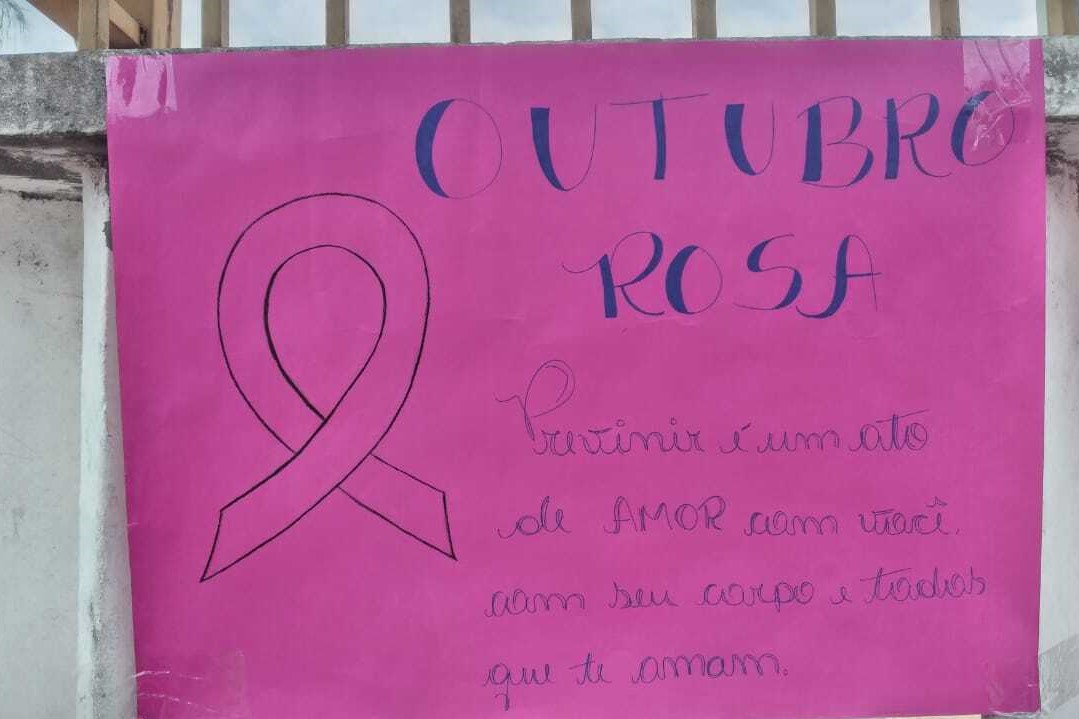 OUTUBRO
ROSA
Prevenir é um ato
de AMOR com você,
com seu corpo e todos
que te amam.